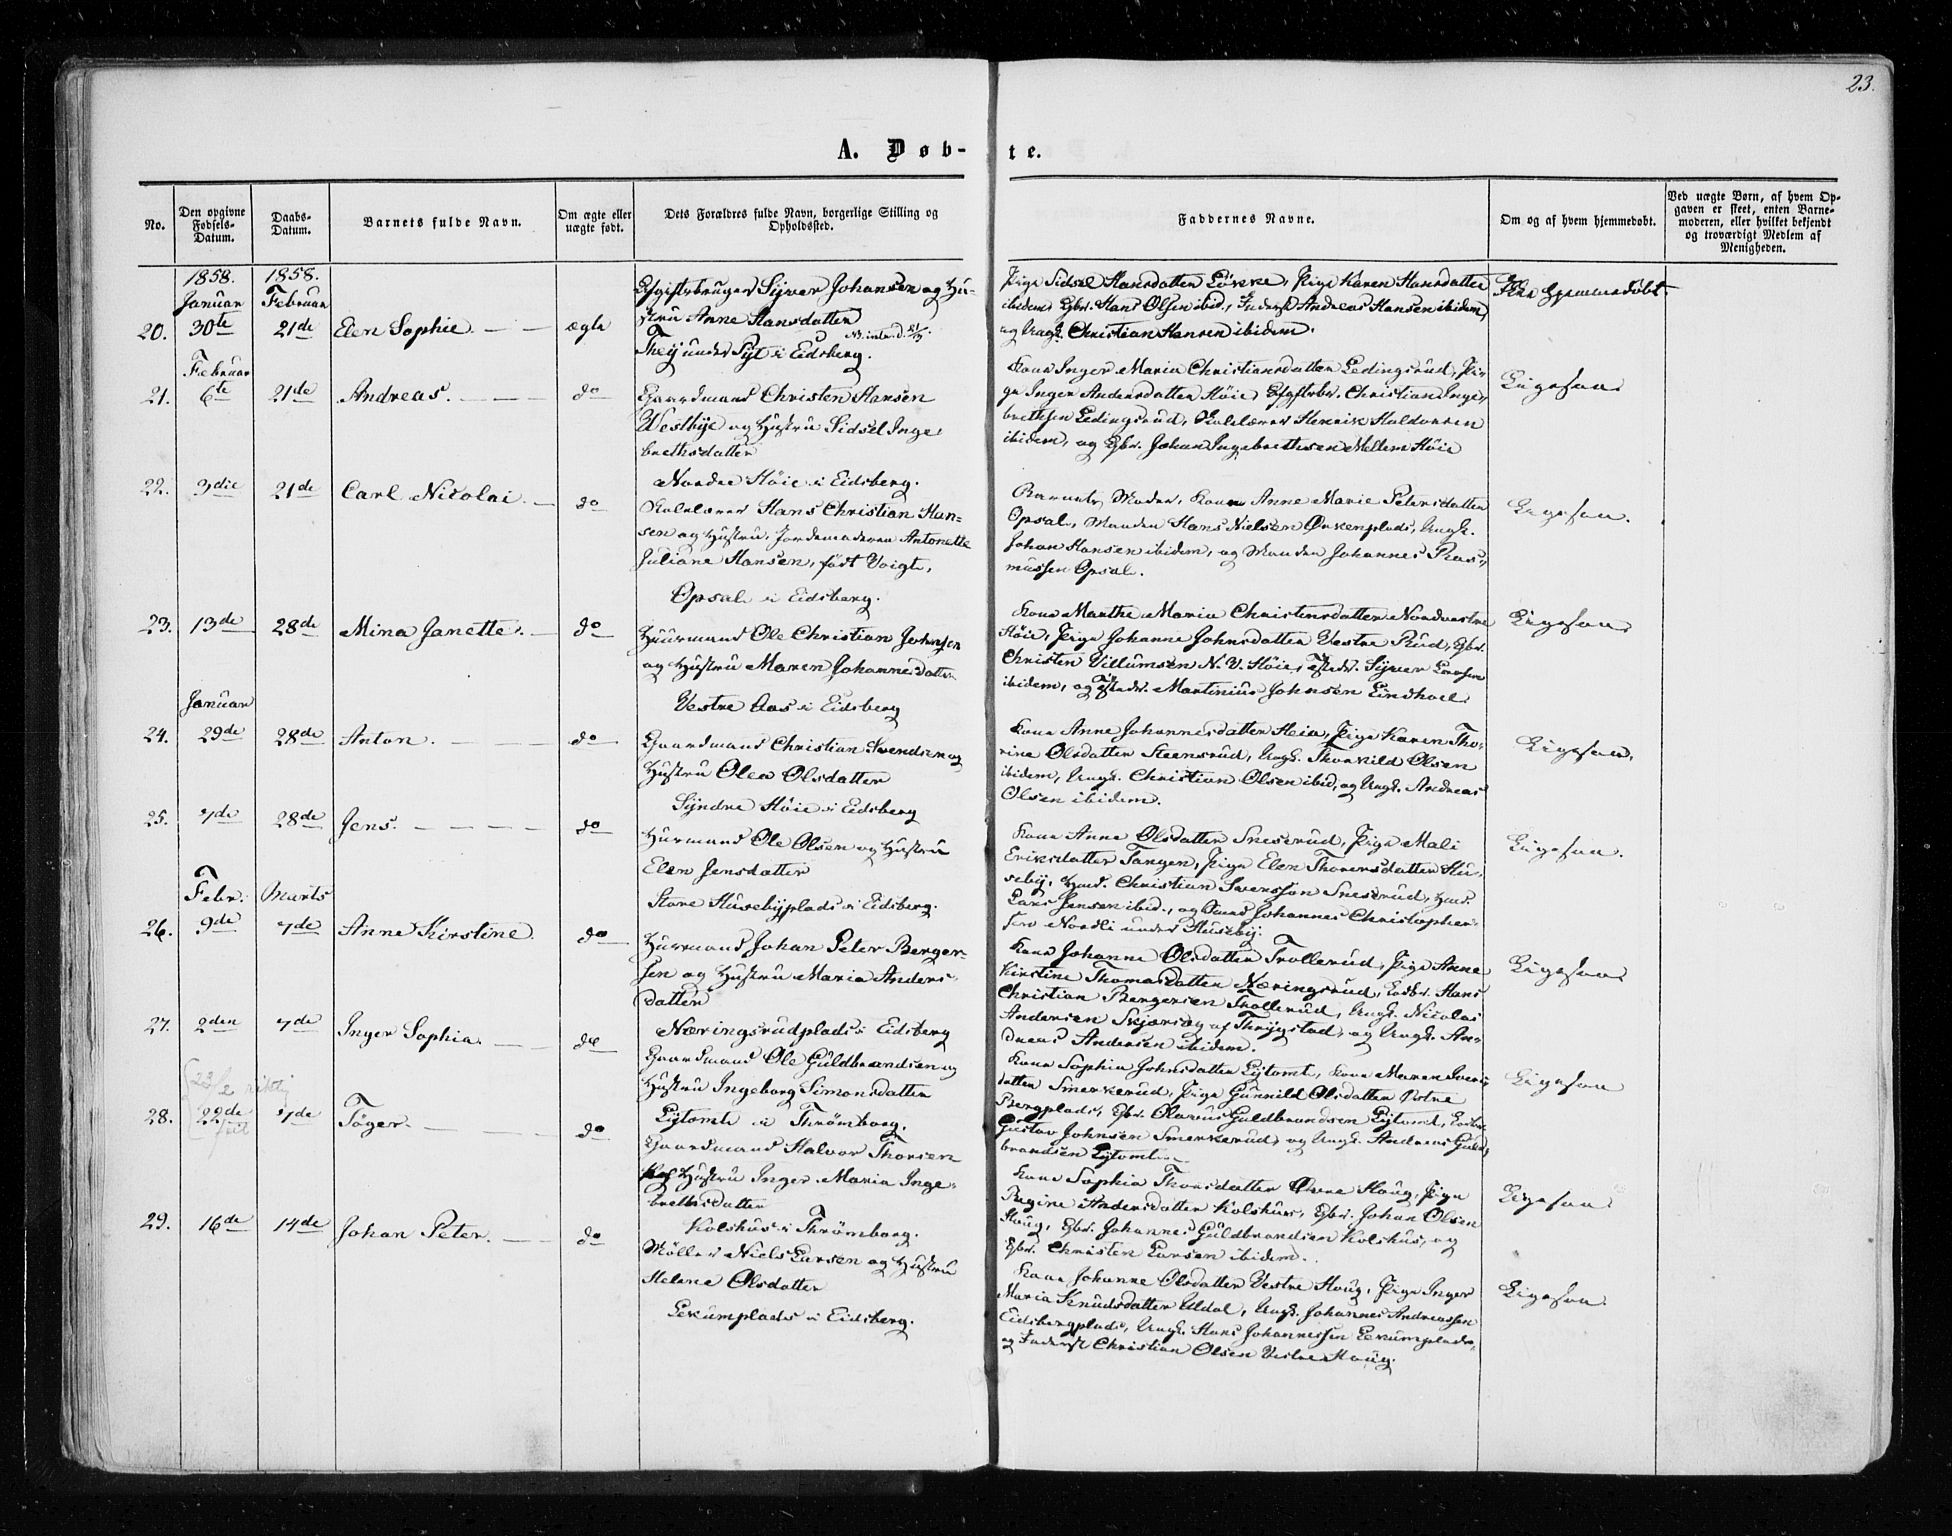 23.
A. Døb-
te.
No.
Den opgivne Fødsels-Datum.
Daabs-Datum.
Barnets fulde Navn.
Om ægte eller uægte født.
Dets Forældres fulde Navn, borgerlige Stilling og Opholdssted.
Faddernes Navne.
Om og af hvem hjemmedøbt.
Ved uægte Børn, af hvem Op-
gaven er skeet, enten Barne-
moderen, eller hvilket bekjendt
og troværdigt Medlem af
Menigheden.
1858. 1858.
Januar Februar
20. 30te 21de Elen Sophie. ægte
Sÿver Johansen og Hu-
stru Anne Hansdatter
Pige Sidsel Hansdatter Løkke, Pige Karen Hansdatter
ibidem, Gbr. Hans Olsen ibid., Andreas Hansen ibidem,
og Ungk. Christian Hansen ibidem.
Ikke hjemmedøbt
Februar
21. 6te 21de Andreas. do
Gaardmand Christen Hansen
Westbÿe og Hustru Sidsel Inge-
brethsdatter
Nordre Høie i Eidsberg.
Kone Inger Maria Christiansdatter Ledingsrud, Pi-
ge Inger Andersdatter Høie, Christian Inge-
brethsen Ledingsrud, Skolelærer Henrik Haldorsen
ibidem, og Gbr. Johan Ingebrethsen Mellem Høie
Ligesaa
22. 3die 21de Carl Nicolai. do
Skolelærer Hans Christian Han-
sen og Hustru, Jordemoderen Antonette
Juliane Hansen, født Voigt,
Opsal i Eidsberg.
Barnets Moder, Kone Anne Marie Petersdatter
Opsal, Manden Hans Nielsen Ørkenplads, Ungk.
Johan Hansen ibidem, og Manden Johannes Ras-
mussen Opsal.
Ligesaa.
23. 13de 28de Mina Janette. do
Huusmand Ole Christian Johnsen
og Hustru Maren Johannesdatter
Vestre Aas i Eidsberg
Kone Marthe Maria Christensdatter Nordvestre
Høie, Pige Johanne Johnsdatter Vestre Rud, Gbr.
Christen Villumsen N. V. Høie, Sÿver Larsen
ibidem, og Martinius Johnsen Lindhoel
Ligesaa
Januar
24. 29de 28de Anton. do
Gaardmand Christian Svendsen og
Hustru Olea Olsdatter
Sÿndre Høie i Eidsberg
Kone Anne Johannesdatter Heia, Pige Karen Tho-
rine Olsdatter Steensrud, Ungk. Thorkild Olsen
ibidem, Ungk. Christian Olsen ibid, og Ungk. Andreas
Olsen ibidem.
Ligesaa.
25. 7de 28de Jens. do
Huusmand Ole Olsen og Hustru
Elen Jensdatter
Store Husebÿplads i Eidsberg.
Kone Anne Olsdatter Sneserud, Pige Mali
Eriksdatter Tangen, Pige Elen Thorersdatter Hu-
sebÿ, Huusm. Christian Svensson Sneserud, Huusm.
Lars Jensen ibid., og Johannes Christopher-
sen Nordli under Husebÿ.
Ligesaa.
Febr. Marts
26. 9de 7de Anne Kirstine. do
Huusmand Johan Peter Berger-
sen og Hustru Maria Anders-
datter
Næringsrudplads i Eidsberg
Kone Johanne Olsdatter Trollerud, Pige Anne
Kirstine Thomasdatter Næringsrud, Hans
Christian Bergersen Trollerud, Ungk. Nicolai
Andersen Skjørsøg af Thrÿgstad, og Ungk. An-
dreas Andersen ibidem.
Ligesaa
27. 2den 7de Inger Sophia. do
Gaardmand Ole Guldbrandsen og
Hustru Ingeborg Simonsdatter
Lÿtomt i Thrømborg.
Kone Sophia Johnsdatter Lÿtomt, Kone Maren
datter Smerkerud, Pige Gunnild Olsdatter
Bergplads, Gbr. Olavus Guldbrandsen Lÿtomt,
Gustav Johnsen Smerkerud, og Ungk. Andreas Guld-
brandsen Lÿtomt.
Ligesaa
28. 22de 7de Töger. do
Gaardmand Halvor Thorsen
og Hustru Inger Maria Inge-
brethsdatter
Kolshus i Thrømborg.
Kone Sophia Thorsdatter Øvre Haug, Pige
Regine Andersdatter Kolshus, Gbr. Johan Olsen
Haug, Gbr. Johannes Guldbrandsen Kolshus, og
Gbr. Christen Larsen ibidem.
Ligesaa
29. 16de 14de Johan Peter. do
Møller Niels Larsen og Hustru
Helene Olsdatter
Lekumplads i Eidsberg.
Kone Johanne Olsdatter Vestre Haug, Pige Inger
Maria Knudsdatter Udal, Ungk. Johannes Andreassen
Eidsbergplads, Ungk. Hans Johannessen Lekumplads,
og Christian Olsen Vestre Haug.
Ligesaa.